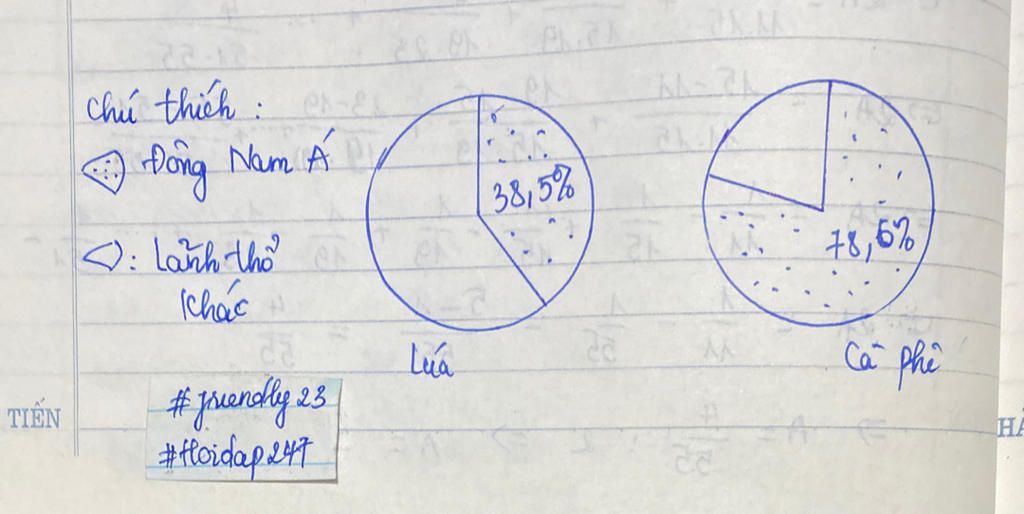 Chú thích :
Đông Nam Á
: Lãnh thổ
Khác
38,5%
78,5%
Lúa
Cà phê
#friendly23
#Hoidap247
TIẾN